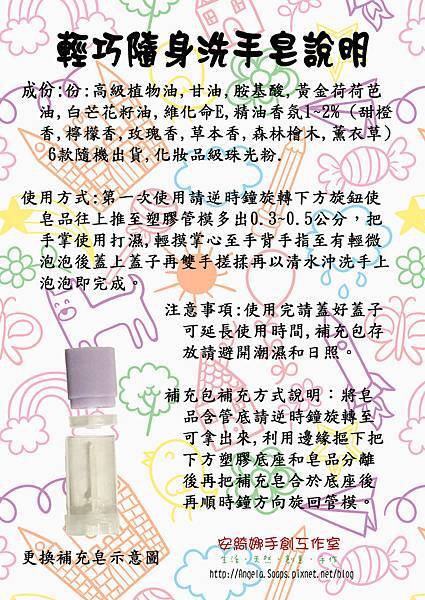 輕巧隨身洗手皂說明
成份:份:高級植物油,甘油,胺基酸,黃金荷荷芭
油,白芒花籽油,維化命E,精油香氛1~2% (甜橙
香,檸檬香,玫瑰香,草本香,森林檜木,薰衣草)
6款隨機出貨,化妝品級珠光粉.
使用方式:第一次使用請逆時鐘旋轉下方旋鈕使
皂品往上推至塑膠管模多出0.3~0.5公分,把
手掌使用打濕,輕摸掌心至手背手指至有輕微
泡泡後蓋上蓋子再雙手搓揉再以清水沖洗手上
泡泡即完成。
注意事項:使用完請蓋好蓋子
可延長使用時間,補充包存
放請避開潮濕和日照。
補充包補充方式說明:將皂
品含管底請逆時鐘旋轉至
可拿出來,利用邊緣摳下把
下方塑膠底座和皂品分離
後再把補充皂合於底座後
再順時鐘方向旋回管模。
更換補充皂示意圖
安綺娜手創工作室
生活·天然·創意·手作
http://Angela.Soaps.pixnet.net/blog